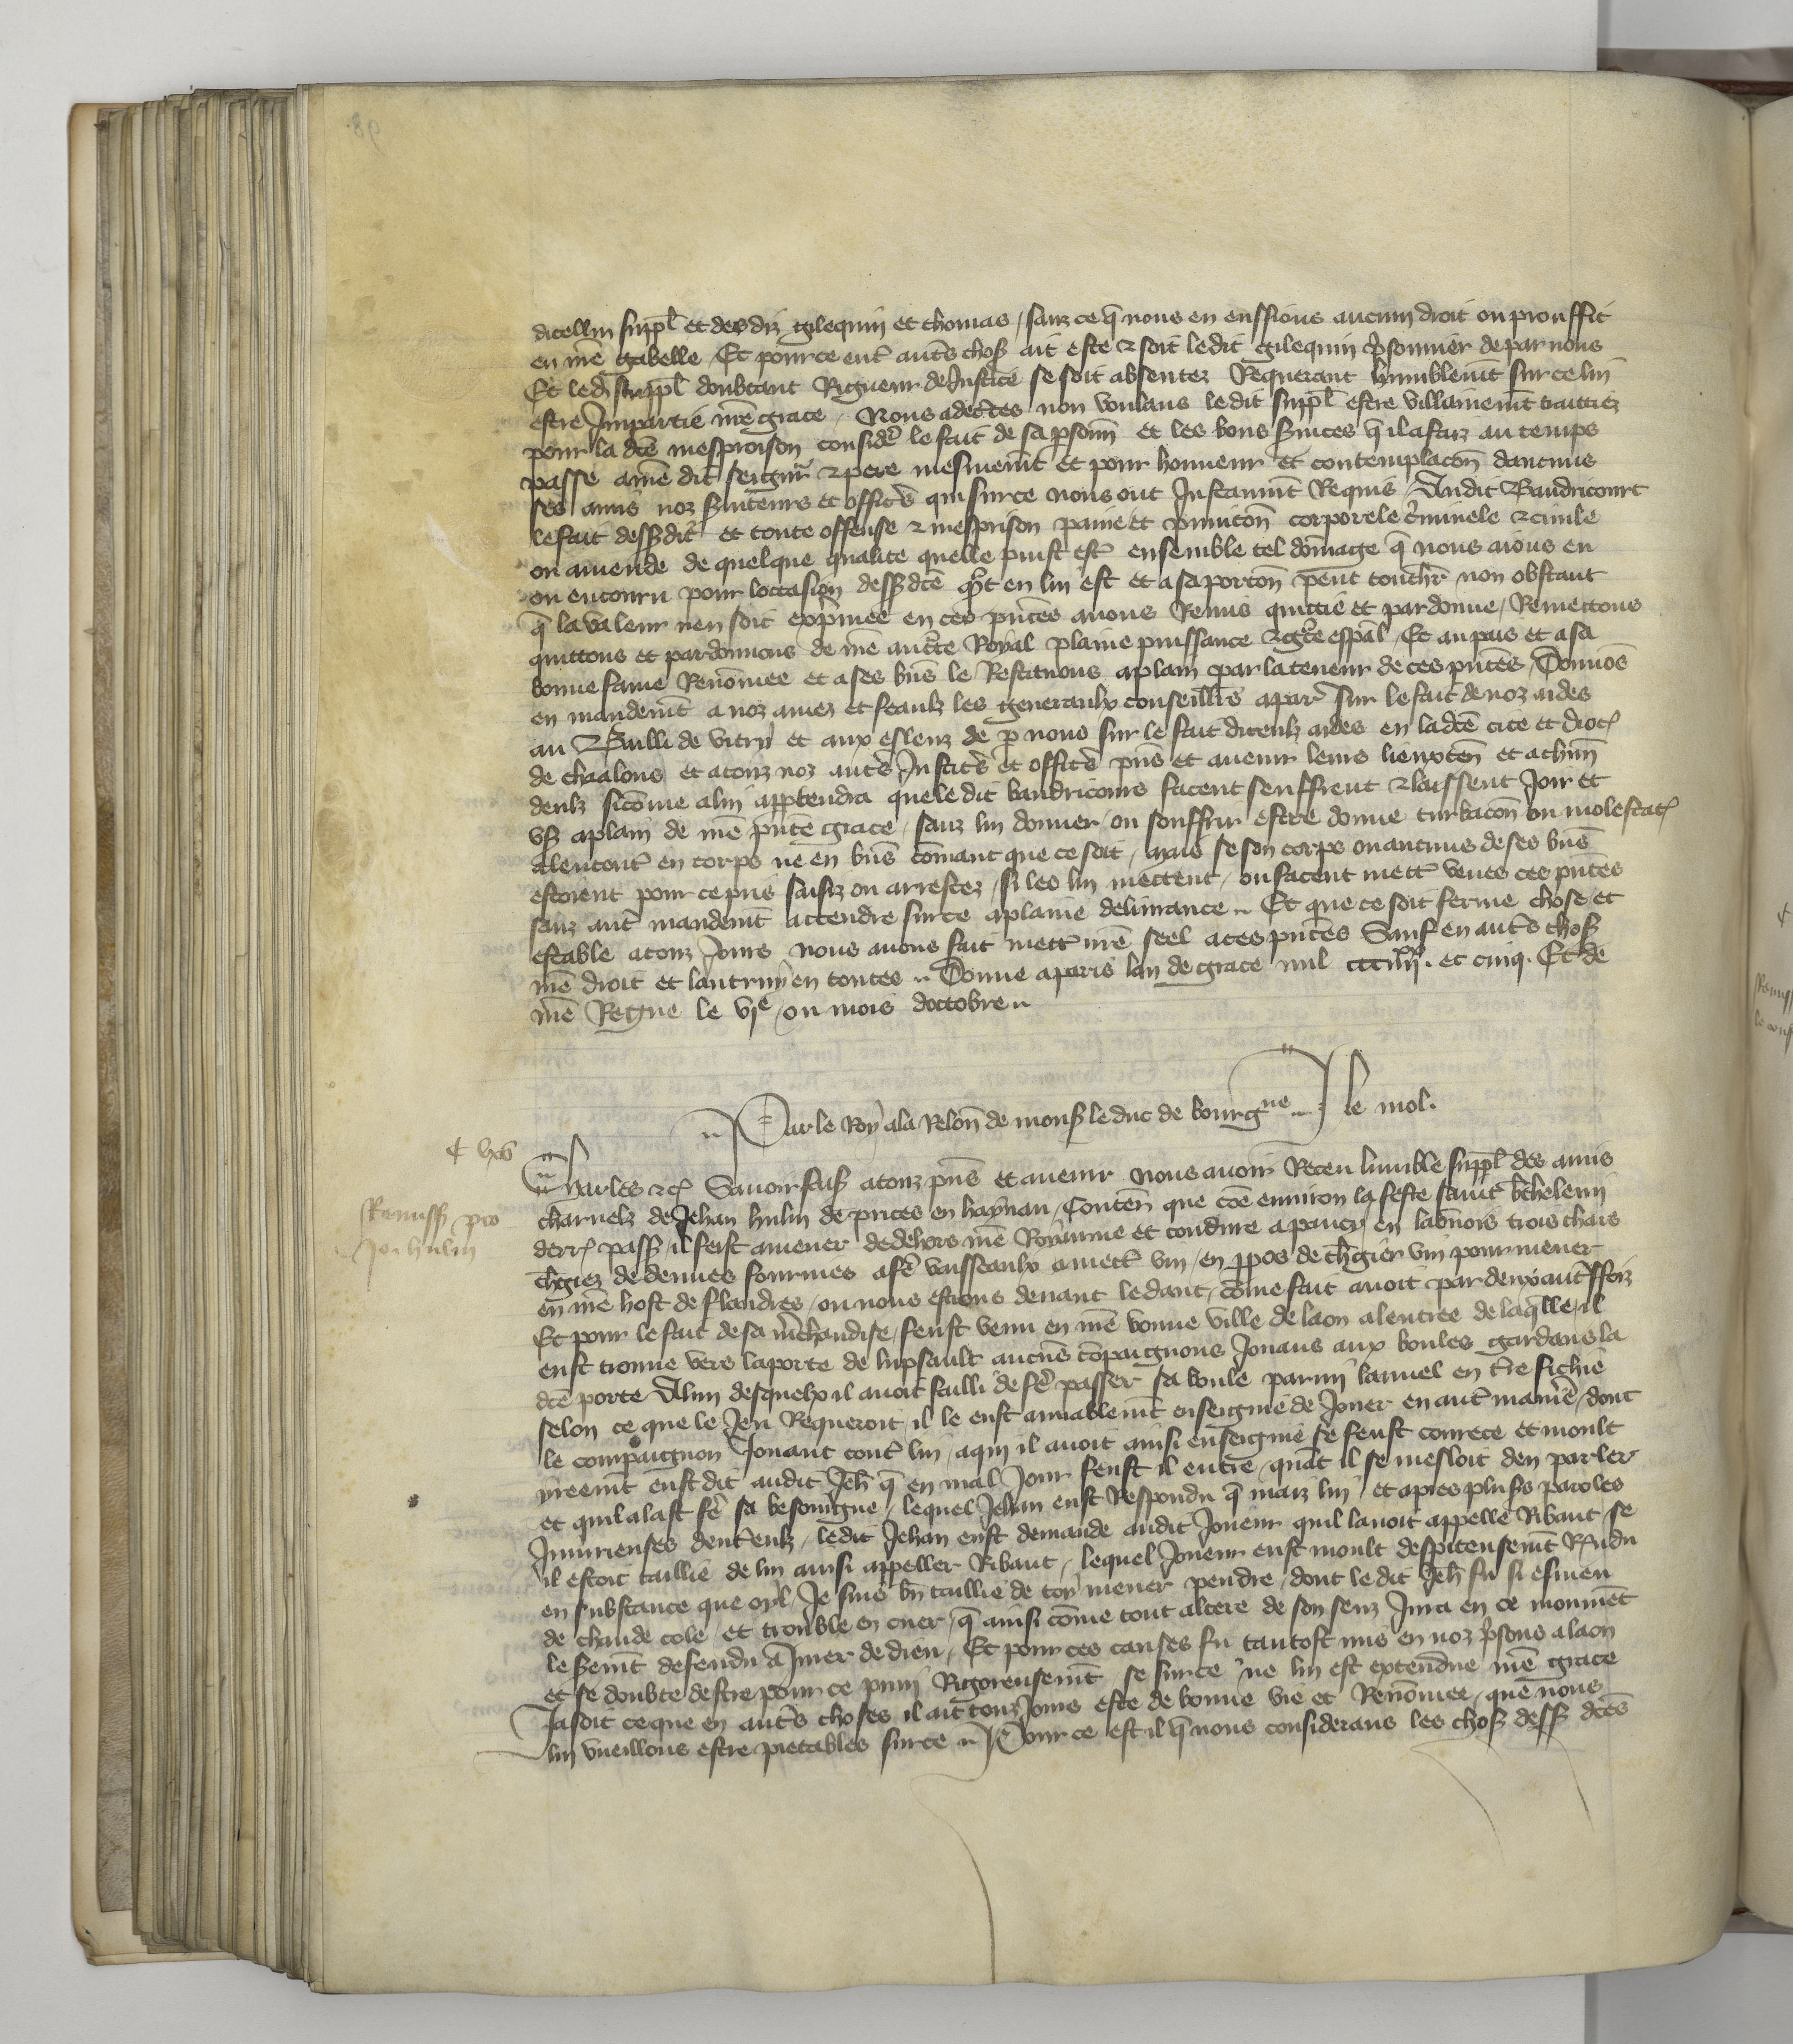 dicellui suppl̄ et desdiz gilequin et thomas, sanz ce q̄ nous en eussions aucun droit ou prouffit
en nr̄e gabelle, Et pour ce entr̄ autr̄s choß ait este ⁊ soit ledit gilequin p̄sonnier de par nous
Et led̄ suppl̄ doubtant Rigueur de Justice se soit absentez Requerant humblemt̄ sur ce lui
estre Jmpartie nr̄e grace, Nous adecc̄tes non voulans ledit suppl̄ estre villainemt̄ traittiez
pour la dc̄e mesproison consider̄ le fait de sa p̄sonn̄ et les bons s̄uices q̄ il a faiz au temps
passe a nr̄e dit seigneur ⁊ pere mesmemt̄ et pour honneur et contemplacōn daucuns
ses amis noz s̄uiteurs et officr̄s qui sur ce nous ont Jnstanmt̄ Requis, Audit Baudricourt
le fait dessusdit et toute offense ⁊ mesprison paine et punicōn corporele c̄minele ⁊ ciuile
ou amende de quelque qualite quelle puist estr̄ ensemble tel dōmage q̄ nous aions eu
ou encouru pour loccasion dessusdc̄e q̄nt en lui est et a sa porcōn peut touchr̄ non obstant
q̄ la valeur nen soit exp̄mee en ces pn̄tes auons Remis quittie et pardonne, Remettons
quittons et pardonnons de nr̄e auctē Royal plaine puissance ⁊ grc̄e esp̄al, Et au pais et a sa
bonne fame Renōmee et a ses biēs le Restituons a plain par la teneur de ces pn̄tes, Donnōs
en mandemt̄ a noz amez et feaulx les generaulx conseillrs̄ a par̄ sur le fait de noz aides
au Bailli de vitry et aux esleuz de p̄ nous sur le fait diceulx aides en ladc̄e cite et dioc̄
de chaalons et a touz noz autr̄s Justicr̄s et officr̄s pn̄s et auenir leurs lieuxten̄ et a chūn
deulx sicōme a lui app̄tendra que le dit baudricourt facent seuffrent ⁊ laissent Joir et
vs̄ a plain de nr̄e pn̄te grace, sanz lui donner ou souffrir estre donne turbacōn ou molestac̄
alencontr̄ en corps ne en biēs cōmant que ce soit, mais se son corps ou aucuns de ses biēs
estoient pour ce pris saisiz ou arrestez, si les lui mettent, ou facent mettr̄ veues ces pn̄tes
sanz autr̄ mandemt̄ attendre sur ce a plaine deliurance .. Et que ce soit ferme chose et
estable a touz Jours nous auons fait mettr̄ nr̄e seel a ces pn̄tes Sauf en autr̄s choß
nr̄e droit et lautruy en toutes .. Donne a paris lan de grace mil ccciiijxx. et cinq. Et de
nr̄e Regne le vjᵉ, ou mois doctobre ..
.. Par le Roy a la Relōn de mons̄ le duc de bourgne .. J le mol.
¢ hēs
Remiss̄ pro
Jo. hulin
Charles ⁊c̄ Sauoir faiß a touz pn̄s et auenir Nous auoir Receu lumble suppl̄ des amis
charnelz de Jehan hulin de prices en haynau, Conten̄ que cōe enuiron la feste saint b̄thelemi
derr̄ pass̄, il feist amener de dehors nr̄e Royaume et conduire a pancy en laōnois trois chars
ch̄giez de deuues fournies a fer̄ vaisseaulx a mettr̄ vin, en p̄pos de ch̄gier vin pour mener
en nr̄e host de flandres, ou nous estions deuant le dant, cōme fait auoit par deux autr̄ffoiz
Et pour le fait de sa m̄chandise, feust venu en nr̄e bonne ville de laon a lentree de laq̄lle, il
eust trouue vers la porte de lupsault aucūs cōpaignons Jouans aux boules gardans la
dc̄e porte A lun desquelx il auoit failli de fer̄ passer sa boule parmi lannel en tr̄re fichie
selon ce que le Jeu Requeroit, il le eust amiablemt̄ enseignie de Jouer en autr̄ manier̄, dont
le compaignon Jouant contr̄ lui, a qui il auoit ainsi enseignie se feust courece et moult
ireemt̄ eust dit audit Jeh̄ q̄ en mal Jour feust il entre, quāt il se mesloit den parler
et quil alast fer̄ sa besoingne, lequel Jehan eust Respondu q̄ maiz lui, et apres plus̄s paroles
Jniurieuses dentr̄eulx, ledit Jehan eust demande audit Joueur quil lauoit appelle Ribaut, se
il estoit taillie de lui ainsi appeller Ribaut, lequel Joueur eust moult despiteusemt̄ R̄ndu
en substance que oyl, Je suis bn̄ taillie de toy mener pendre, dont le dit Jeh̄ fu si esmeu
de chaude cole, et trouble en cuer, q̄ ainsi cōme tout altere de son senz Jura en ce momēt
le s̄emt̄ defendu a Jurer de dieu, Et pour ces causes fu tantost mis en noz p̄sons a laon
et se doubte destre pour ce puni Rigoreusemt̄, se sur ce ne lui est extendue nr̄e grace
Jasoit ce que en autr̄s choses il ait touz Jours este de bonne vie et Renōmee, que nous
lui vueillons estre pietables sur ce .. Pour ce est il q̄ nous considerans les choß dess̄ dc̄es